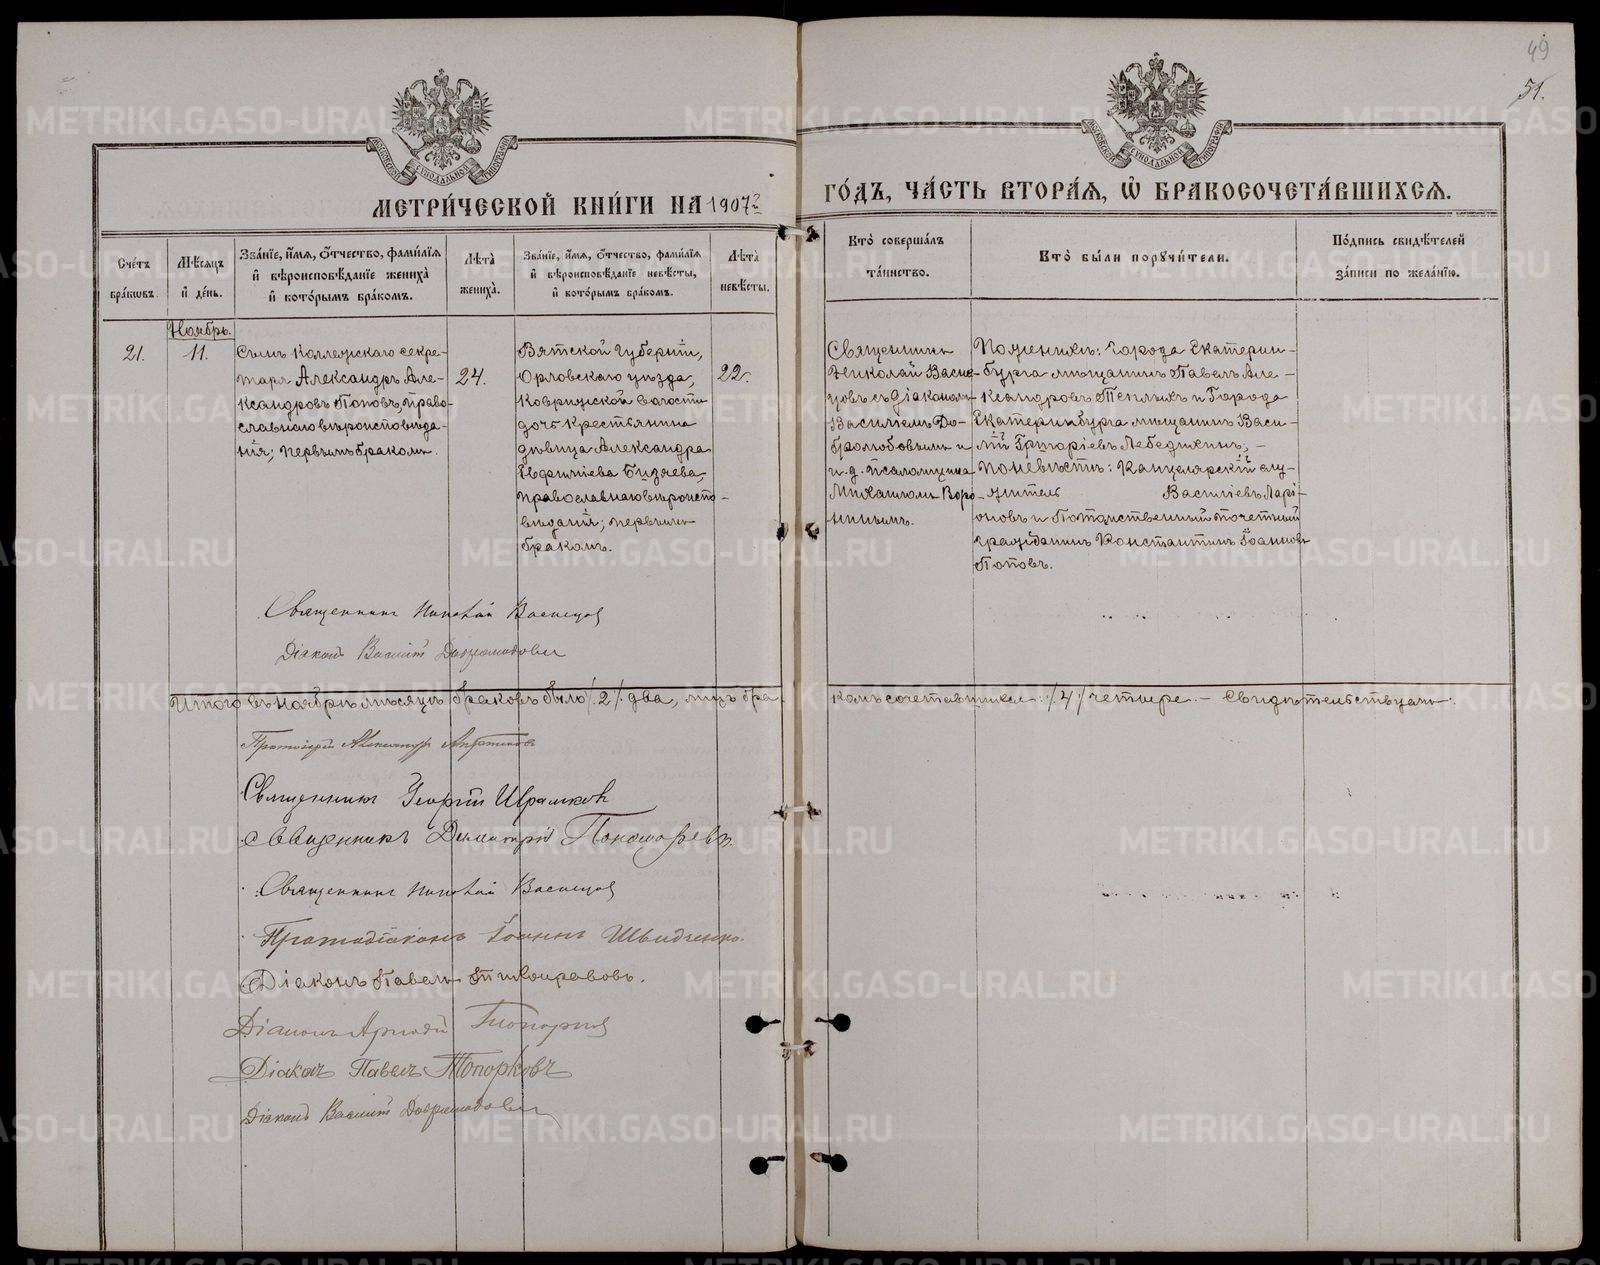 49
51.
МЕТРИ́ЧЕСКОЙ КНИ́ГИ НА 1907 ГО́ДЪ, ЧА́СТЬ ВТОРА́Я, Ѿ БРАКОСОЧЕТА́ВШИХСЯ.
Сче́тъ бра́ковъ.
Мѣ́сяцъ и҆ де́нь.
Зва́нїе, и҆́мя, ѻ҆́тчество, фами́лїя и҆ вѣроисповѣ́данїе жениха̀ и҆ кото́рымъ бра́комъ.
Лѣ́та жениха̀.
Зва́нїе, и҆́мя, ѻ҆́тчество, фами́лїя и҆ вѣроисповѣ́данїе невѣ́сты, и҆ кото́рымъ бра́комъ.
Лѣ́та невѣ́сты.
Кто̀ соверша́лъ та́инство.
Кто̀ бы́ли порꙋчи́тели.
По́дпись свидѣ́телей за́писи по жела́нїю.
Ноябрь.
21.
11.
Сынъ Коллежскаго секре-
таря Александръ Але-
ксандровъ Поповъ, право-
славнаго вѣроисповѣда-
нія; первымъ бракомъ.
24.
Вятской Губерніи,
Орловскаго уѣзда,
волости
дочь Крестьянина
дѣвица Александра
Евфиміева Бизяева,
православнаго вѣроиспо-
вѣданія; первымъ
бракомъ.
22.
Священникъ
Николай Васне-
цовъ съ діакономъ
Василіемъ До-
бролюбовымъ и
и. д. псаломщика
Михаиломъ Воро-
нинымъ.
По женихѣ: Города Екатерин-
бурга мѣщанинъ Павелъ Але-
ксандровъ Теплыхъ и Города
Екатеринбурга мѣщанинъ Васи-
лій Григоріевъ Лебедкинъ; -
по невѣстѣ: Канцелярскій слу-
житель Василіевъ Ларі-
оновъ и Потомственный почетный
гражданинъ Константинъ Іоанновъ
Поповъ.
Священникъ Николай Васнецов
Діаконъ Василій Добролюбовъ
Итого въ ноябрѣ мѣсяцѣ браковъ было /2/ два, лицъ бра-
комъ сочетавшихся: /4/ четыре. - Свидѣтельствуемъ:
Протоіерей Александръ
Священникъ Георгій
Священникъ Димитрій Пономаревъ.
Священникъ Николай Васнецов
Протодіаконъ Іоаннъ Швидченко.
Діаконъ Павелъ Тихонравовъ.
Діаконъ Аркадій
Діаконъ Павелъ Топорковъ
Діаконъ Василій Добролюбовъ
METRIKI.GASO-URAL.RU